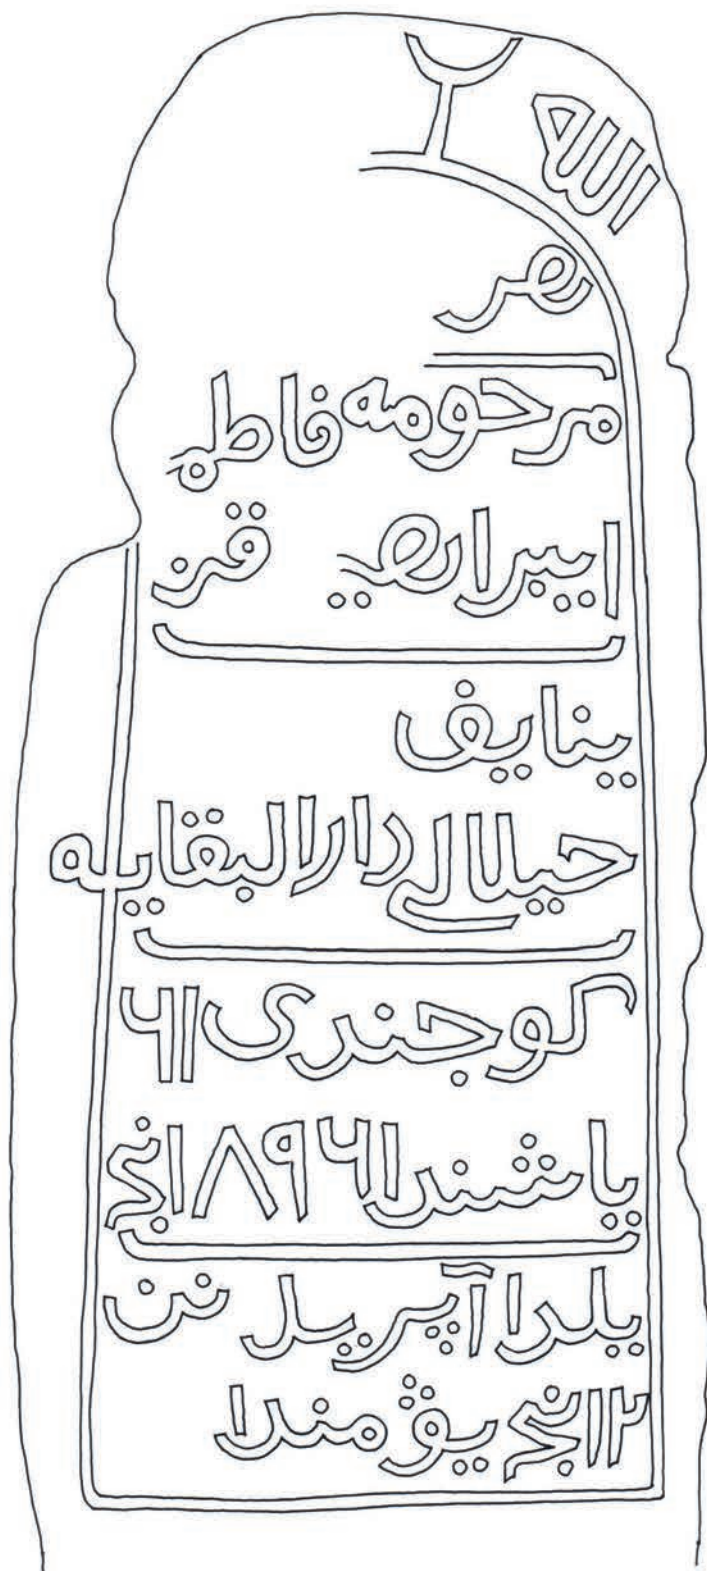 الله
هر
مرحومه فاطمه
ايبراهيم قز
ينايف
حيلالى دارالبقايه
كوجندى ۶۱
ياشندا ۱۸۹۶ نجى
يلدا آپريل نن
۱۲ نجى يۋمندا